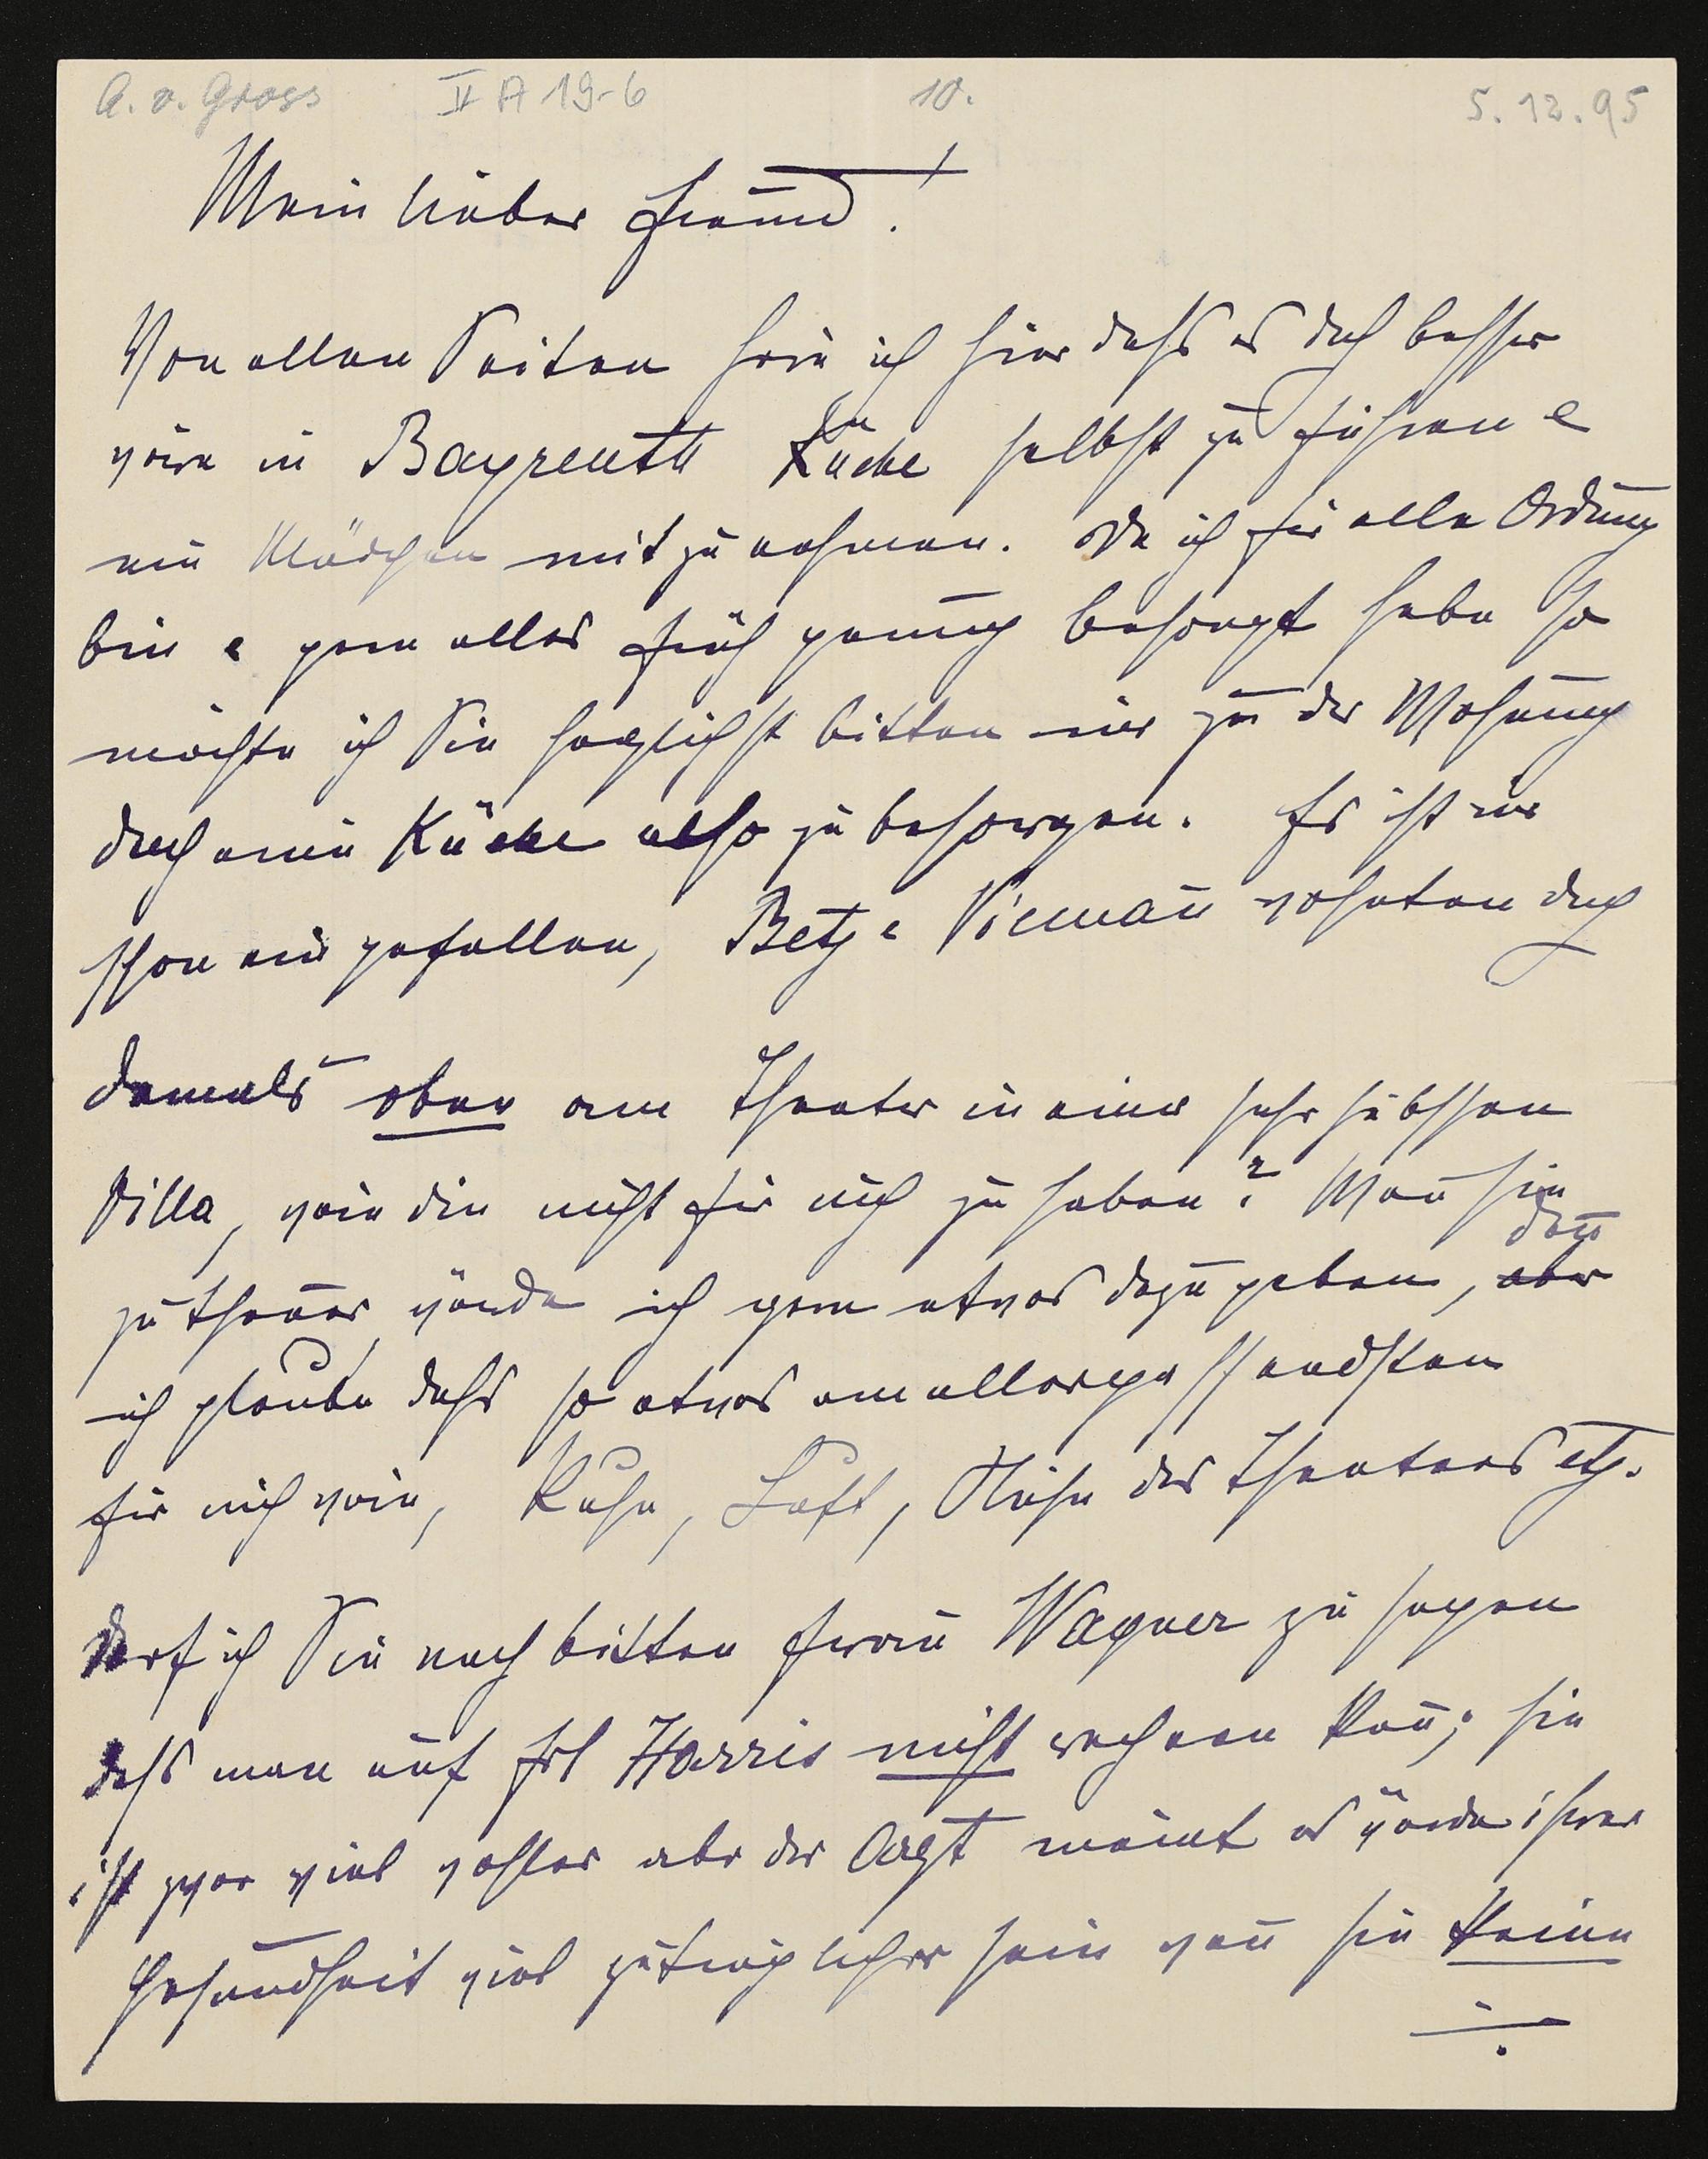 A. v. Gross II A 19-6 10. 5.12.95
Mein lieber Freund!
Von allen Seiten höre ich hier dass es doch besser
wäre in Bayreuth die Küche selbst zu führen &
ein Mädchen mitzunehmen. Da ich für alle Ordnung
bin & gern alles früh genug besorgt habe so
möchte ich Sie herzlichst bitten mir zu der Wohnung
doch eine Küche also zu besorgen. Es ist mir
schon eingefallen, Betz & Niemañ wohnten doch
damals oben am Theater in einer sehr hübschen
Villa, wäre die nicht für mich zu haben? Weñ sie
zu theuer würde ich gern etwas dazu geben, aber deñ
ich glaube dass so etwas am allerpassendsten
für mich wäre, Ruhe, Luft, Nähe des Theaters etz.
Darf ich Sie noch bitten Frau Wagner zu sagen
dass man auf Frl Harris nicht rechnen kañ; sie
ist zwar viel wohler aber der Arzt meint es würde ihrer
Gesundheit viel zuträglicher sein weñ sie keine